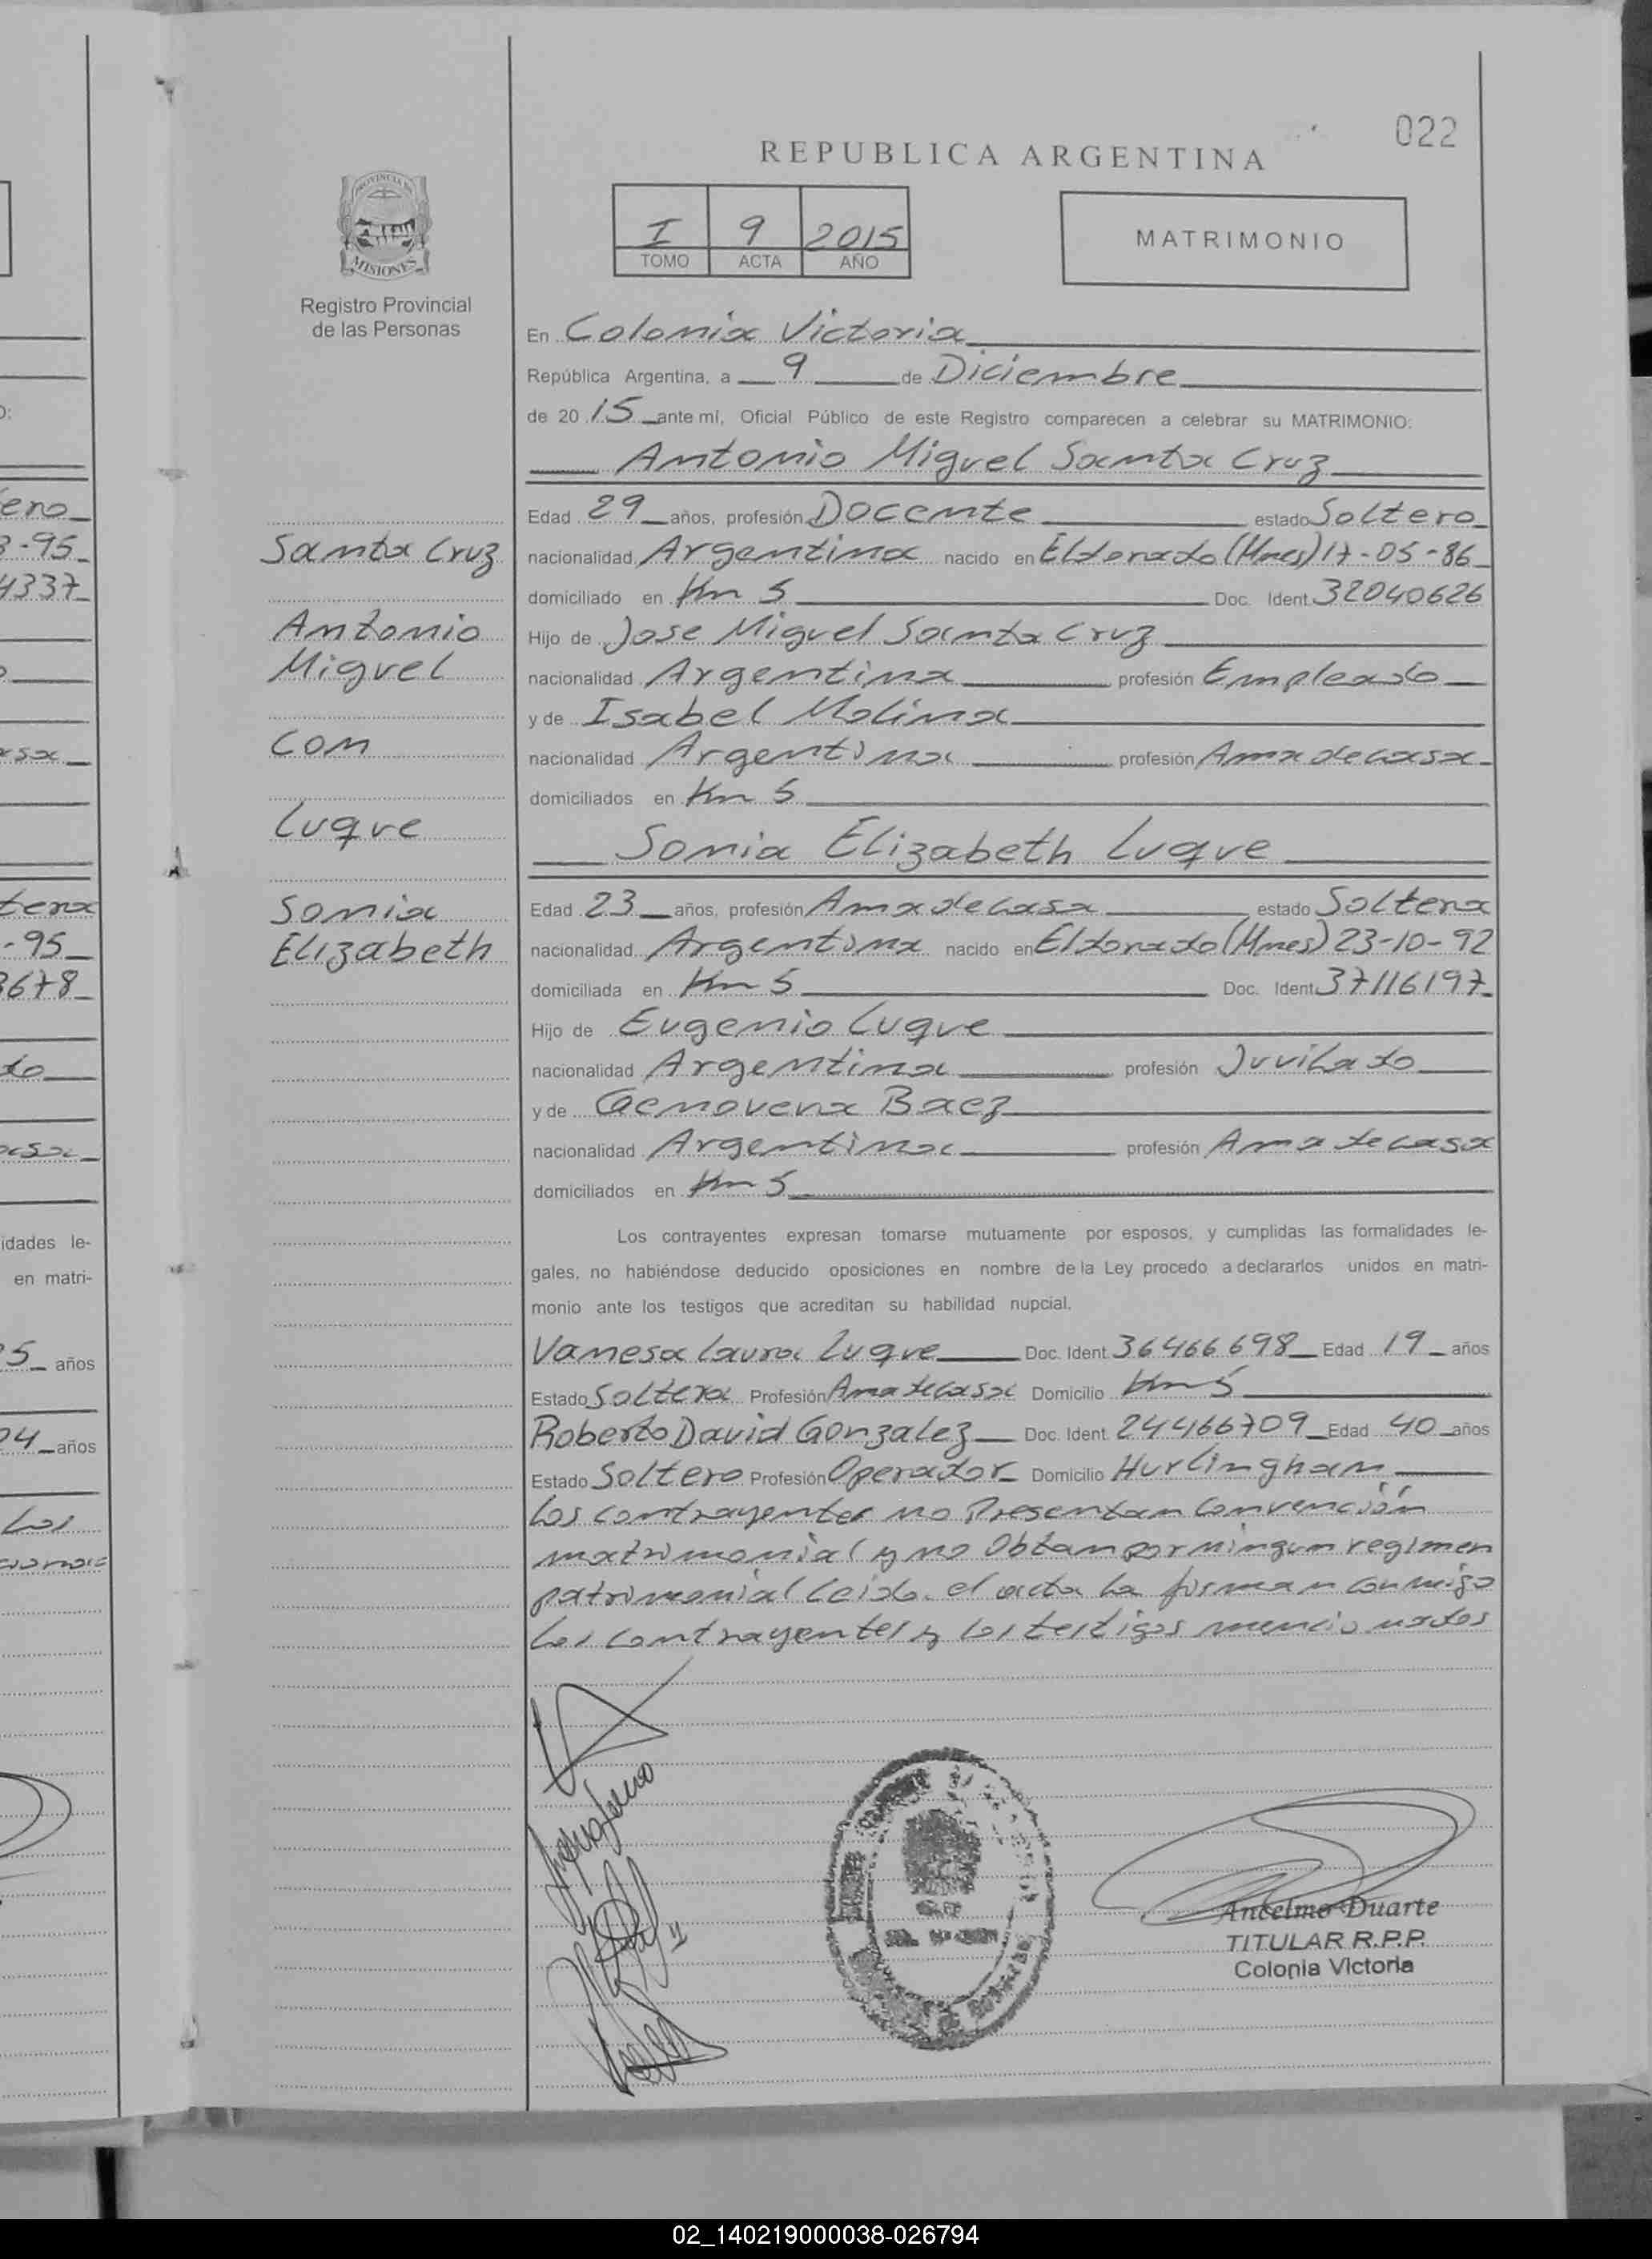 022
REPUBLICA ARGENTINA
PROVINCIA DE
MISIONES
Registro Provincial
de las Personas
I 9 2015
TOMO ACTA AÑO
MATRIMONIO
En Colonia Victoria
República Argentina, a 9 de Diciembre
de 20 15 ante mí, Oficial Público de este Registro comparecen a celebrar su MATRIMONIO:
Antonio Miguel Santa Cruz
Edad 29 años, profesión Docente estado Soltero
nacionalidad Argentina nacido en Eldorado (Mnes) 17-05-86
domiciliado en Km 5 Doc. Ident. 32040626
Hijo de Jose Miguel Santa Cruz
nacionalidad Argentina profesión Empleado
y de Isabel Molina
nacionalidad Argentina profesión Ama de casa
domiciliados en Km 5
Sonia Elizabeth Luque
Edad 23 años, profesión Ama de casa estado Soltera
nacionalidad Argentina nacido en Eldorado (Mnes) 23-10-92
domiciliada en Km 5 Doc. Ident. 37116197
Hijo de Eugenio Luque
nacionalidad Argentina profesión Juvilado
y de Genovena Baez
nacionalidad Argentina profesión Ama de casa
domiciliados en Km 5
Santa Cruz
Antonio
Miguel
con
Luque
Sonia
Elizabeth
Los contrayentes expresan tomarse mutuamente por esposos, y cumplidas las formalidades le-
gales, no habiéndose deducido oposiciones en nombre de la Ley procedo a declararlos unidos en matri-
monio ante los testigos que acreditan su habilidad nupcial.
Vanesa Laura Luque Doc. Ident. 36466698 Edad 19 años
Estado Soltera Profesión Ama de casa Domicilio Km 5
Roberto David Gonzalez Doc. Ident. 24466709 Edad 40 años
Estado Soltero Profesión Operador Domicilio Hurlingham
Los contrayentes no Presentan Convención
matrimonial y no Obtan por ningun regimen
patrimonial leido el acta la firman conmigo
los contrayentes y los testigos mencionados
Ancelmo Duarte
TITULAR R.P.P.
Colonia Victoria
eno
3-95
4337
asa
tera
-95
3678
do
asa
idades le-
en matri-
5 años
04 años
Los
02_140219000038-026794